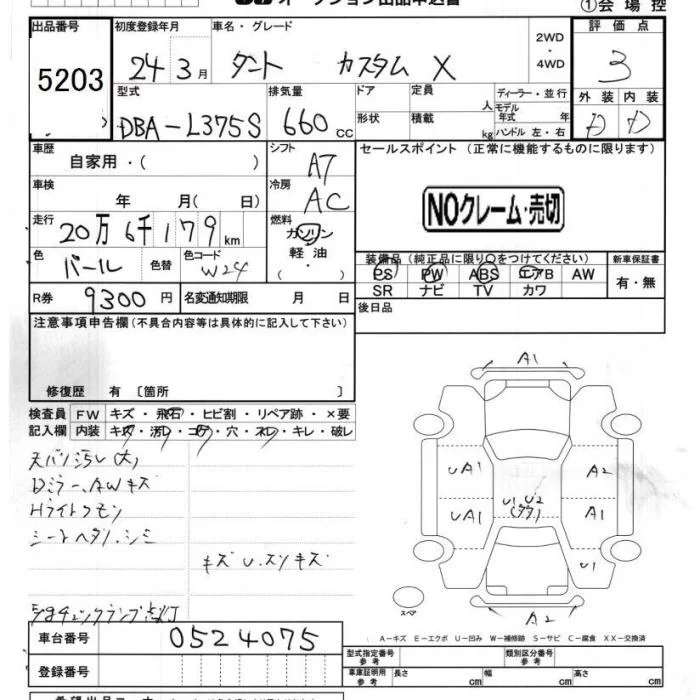 ①会 場 控
出品番号
5203
初度登録年月
24 3月
車名・グレード
タント カスタム X
2WD
・
4WD
評 価 点
3
外 装 内 装
D D
型式
DBA-L375S
排気量
660 cc
ドア
形状
定員 人
積載 kg
ディーラー・並行
モデル
年式 年
ハンドル 左・右
車歴
自家用・( )
シフト
A7
セールスポイント (正常に機能するものに限ります)
NOクレーム・売切
車検
年 月( 日)
冷房
AC
走行
20万 6千 179 km
燃料
ガソリン
軽 油
・
色
パール
色替
色コード
W24
装備品 (純正品に限り○をつけてください)
PS PW ABS エアB AW
SR ナビ TV カワ
新車保証書
有・無
R券 9300円
名変通知期限 月 日
後日品
注意事項申告欄(不具合内容等は具体的に記入して下さい)
修復歴 有 〔箇所 〕
検査員
記入欄
FW キズ・飛石・ヒビ割・リペア跡・×要
内装 キズ・汚レ・コゲ・穴・スレ・キレ・破レ
天バリ汚レ(大)
Dミラー、AWキズ
Hライトクモリ
シートヘタリ、シミ
キズU、スリキズ
チェックランプ点灯
A1
UA1
UA1
U1 U2
A2
A1
U1
A2
スペア
A-キズ E-エクボ U-凹み W-補修跡 S-サビ C-腐食 XX-交換済
車台番号 0524075
登録番号
型式指定番号
参 考
類別区分番号
参 考
車庫証明用
参 考
長さ cm
幅 cm
高さ cm